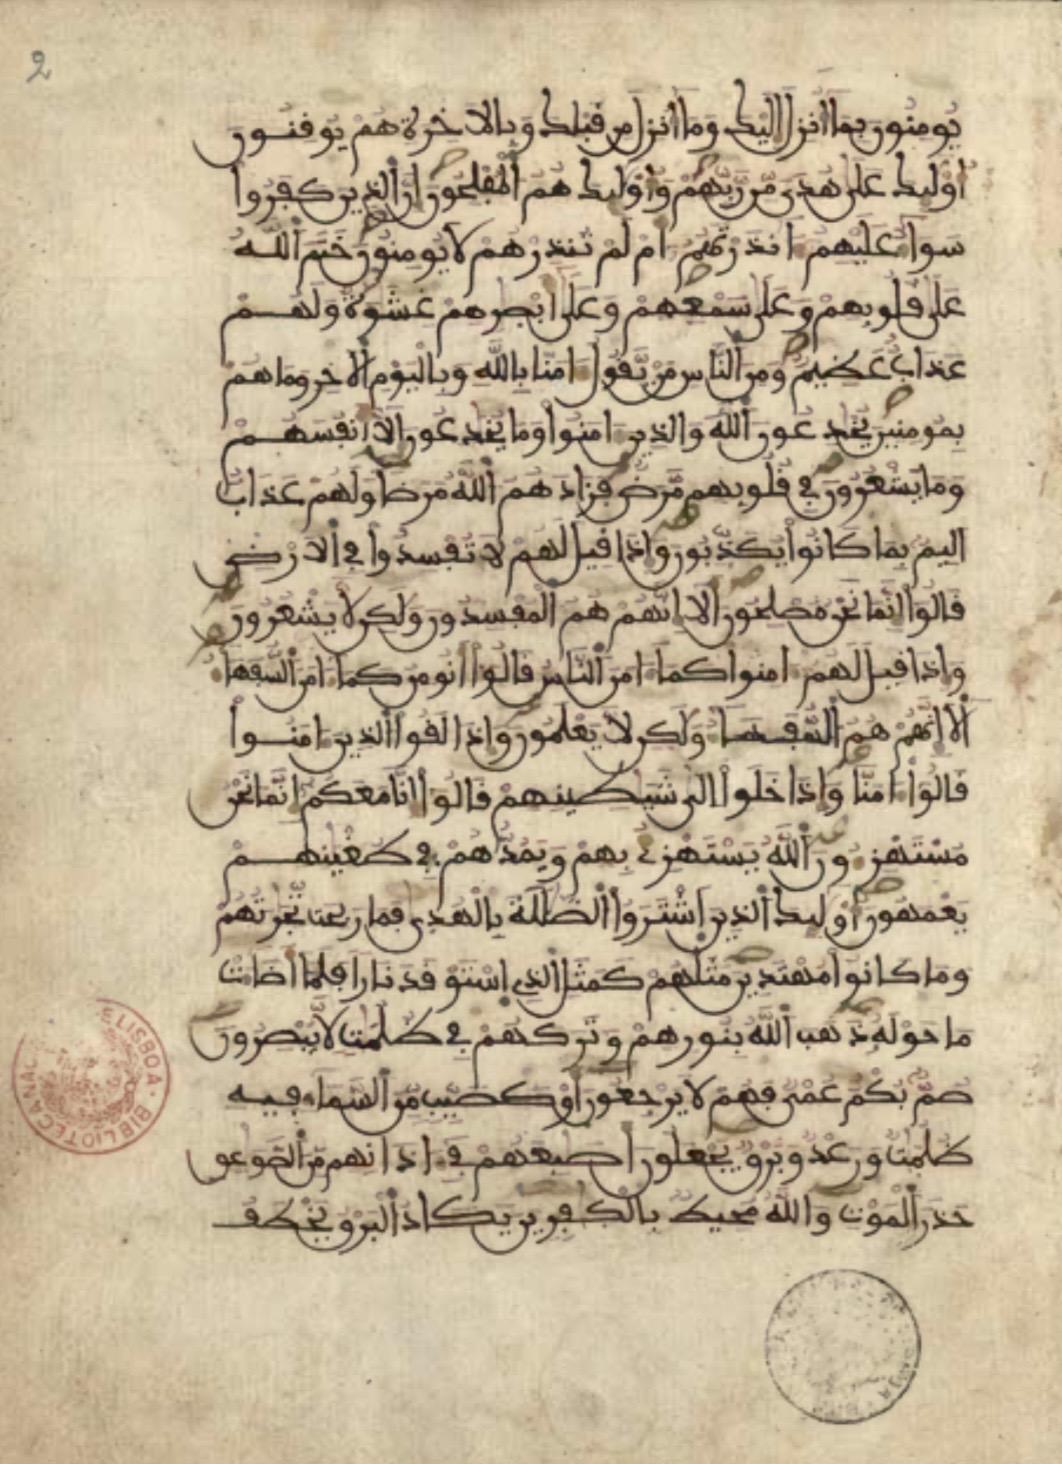 2
يُومِنُونَ بِمَا أُنزِلَ إِلَيْكَ وَمَا أُنزِلَ مِن قَبْلِكَ وَبِالَاخِرَةِ هُمْ يُوقِنُونَ
أُوْلَٰئِكَ عَلَىٰ هُدىً مِّن رَّبِّهِمْ وَأُوْلَٰئِكَ هُمُ الْمُفْلِحُونَ إِنَّ الَذِينَ كَفَرُوا
سَوَآءٌ عَلَيْهِمُ ءَانذَرْتَهُمُ أَمْ لَمْ تُنذِرْهُمْ لَا يُومِنُونَ خَتَمَ اللَّهُ
عَلَىٰ قُلُوبِهِمْ وَعَلَىٰ سَمْعِهِمْ وَعَلَىٰ أَبْصَٰرِهِمْ غِشَٰوَةٌ وَلَهُمْ
عَذَابٌ عَظِيمٌ وَمِنَ النَّاسِ مَنْ يَّقُولُ ءَامَنَّا بِاللَّهِ وَبِالْيَوْمِ الَاخِرِ وَمَا هُم
بِمُومِنِينَ يُخَٰدِعُونَ اللَّهَ وَالذِينَ ءَامَنُوا وَمَا يُخَٰدِعُونَ إِلَّا أَنفُسَهُمْ
وَمَا يَشْعُرُونَ فِي قُلُوبِهِم مَّرَضٌ فَزَادَهُمُ اللَّهُ مَرَضاً وَلَهُمْ عَذَابٌ
اَلِيمٌ بِمَا كَانُوا يُكَذِّبُونَ وَإِذَا قِيلَ لَهُمْ لَا تُفْسِدُوا فِي الَارْضِ
قَالُوا إِنَّمَا نَحْنُ مُصْلِحُونَ أَلَا إِنَّهُمْ هُمُ الْمُفْسِدُونَ وَلَٰكِن لَّا يَشْعُرُونَ
وَإِذَا قِيلَ لَهُمُ ءَامِنُوا كَمَا ءَامَنَ النَّاسُ قَالُوا أَنُومِنُ كَمَا ءَامَنَ السُّفَهَآءُ
أَلَا إِنَّهُمْ هُمُ السُّفَهَآءُ وَلَٰكِن لَّا يَعْلَمُونَ وَإِذَا لَقُوا الذِينَ ءَامَنُوا
قَالُوا ءَامَنَّا وَإِذَا خَلَوْا اِلَىٰ شَيَٰطِينِهِمْ قَالُوا إِنَّا مَعَكُمُ إِنَّمَا نَحْنُ
مُسْتَهْزِءُونَ اللَّهُ يَسْتَهْزِئُ بِهِمْ وَيَمُدُّهُمْ فِي طُغْيَٰنِهِمْ
يَعْمَهُونَ أُوْلَٰئِكَ الذِينَ اشْتَرَوُا الضَّلَٰلَةَ بِالْهُدَىٰ فَمَا رَبِحَت تِّجَٰرَتُهُمْ
وَمَا كَانُوا مُهْتَدِينَ مَثَلُهُمْ كَمَثَلِ الذِي اسْتَوْقَدَ نَاراً فَلَمَّا أَضَآءَتْ
مَا حَوْلَهُ ذَهَبَ اللَّهُ بِنُورِهِمْ وَتَرَكَهُمْ فِي ظُلُمَٰتٍ لَّا يُبْصِرُونَ
صُمٌّ بُكْمٌ عُمْيٌ فَهُمْ لَا يَرْجِعُونَ أَوْ كَصَيِّبٍ مِّنَ السَّمَآءِ فِيهِ
ظُلُمَٰتٌ وَرَعْدٌ وَبَرْقٌ يَجْعَلُونَ أَصَٰبِعَهُمْ فِي ءَاذَانِهِم مِّنَ الصَّوَٰعِقِ
حَذَرَ الْمَوْتِ وَاللَّهُ مُحِيطٌ بِالْكَٰفِرِينَ يَكَادُ الْبَرْقُ يَخْطَفُ
LISBOA · BIBLIOTECA NAC